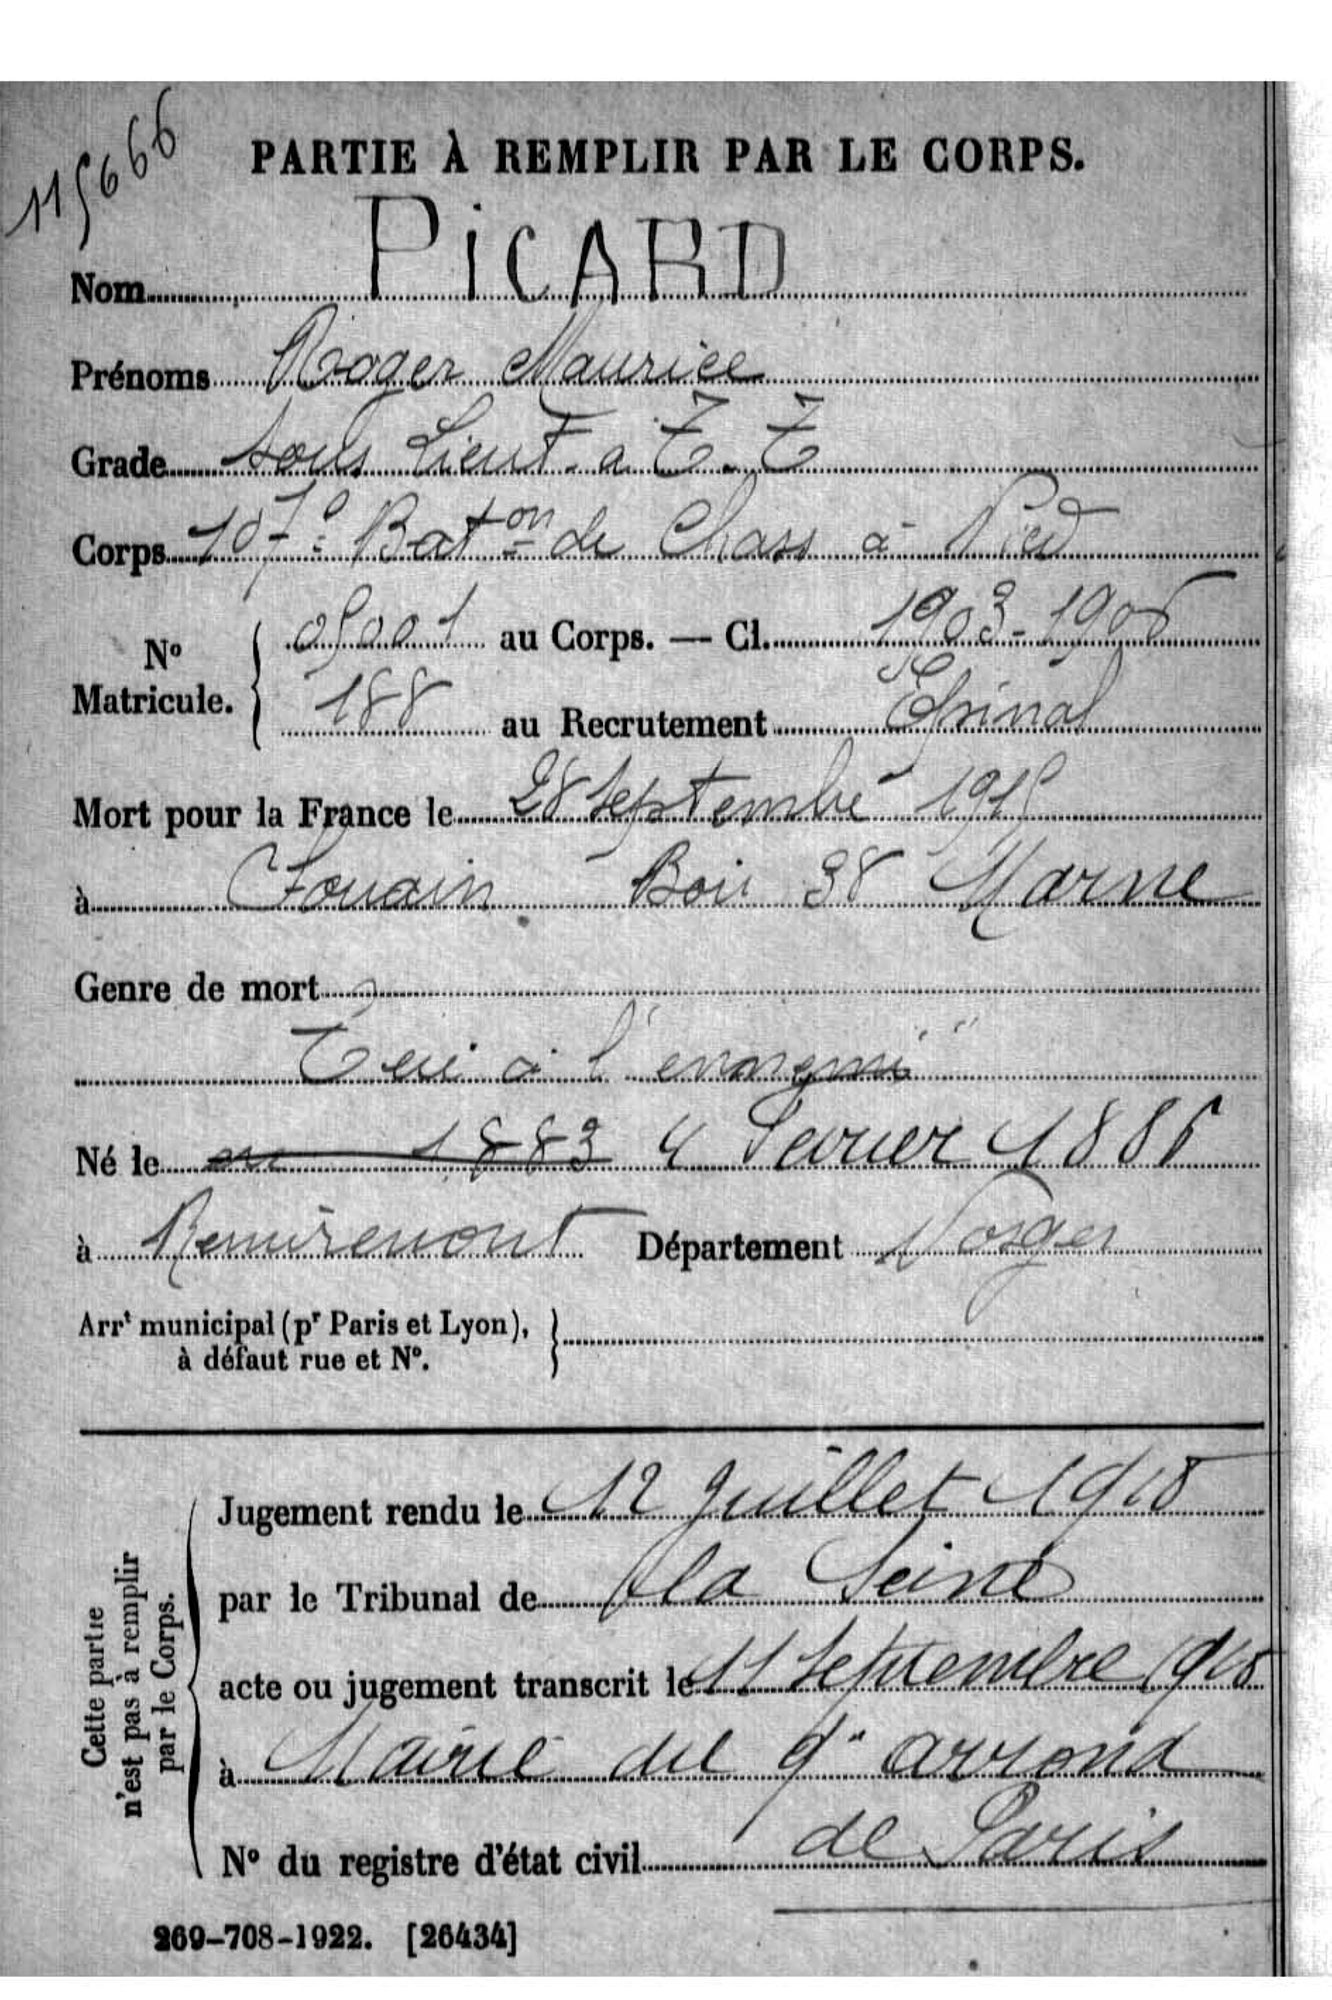 115666
PARTIE À REMPLIR PAR LE CORPS.
Nom PiCARD
Prénoms Roger Maurice
Grade Sous Lieut. a T. T
Corps 107e Baton de Chass à Pied
No Matricule. { 05001 au Corps. — Cl. 1903-1905
188 au Recrutement Épinal
Mort pour la France le 28 Septembre 1915
à Jouain Bois 38 Marne
Genre de mort
Tué à l'ennemi
Né le en 1883 4 Février 1885
à Remiremont Département Vosges
Arrt municipal (pr Paris et Lyon), à défaut rue et No.
Cette partie n'est pas à remplir par le Corps.
Jugement rendu le 12 Juillet 1918
par le Tribunal de la Seine
acte ou jugement transcrit le 11 Septembre 1918
à Mairie du 9e arrond
de Paris
No du registre d'état civil
269-708-1922. [26434]